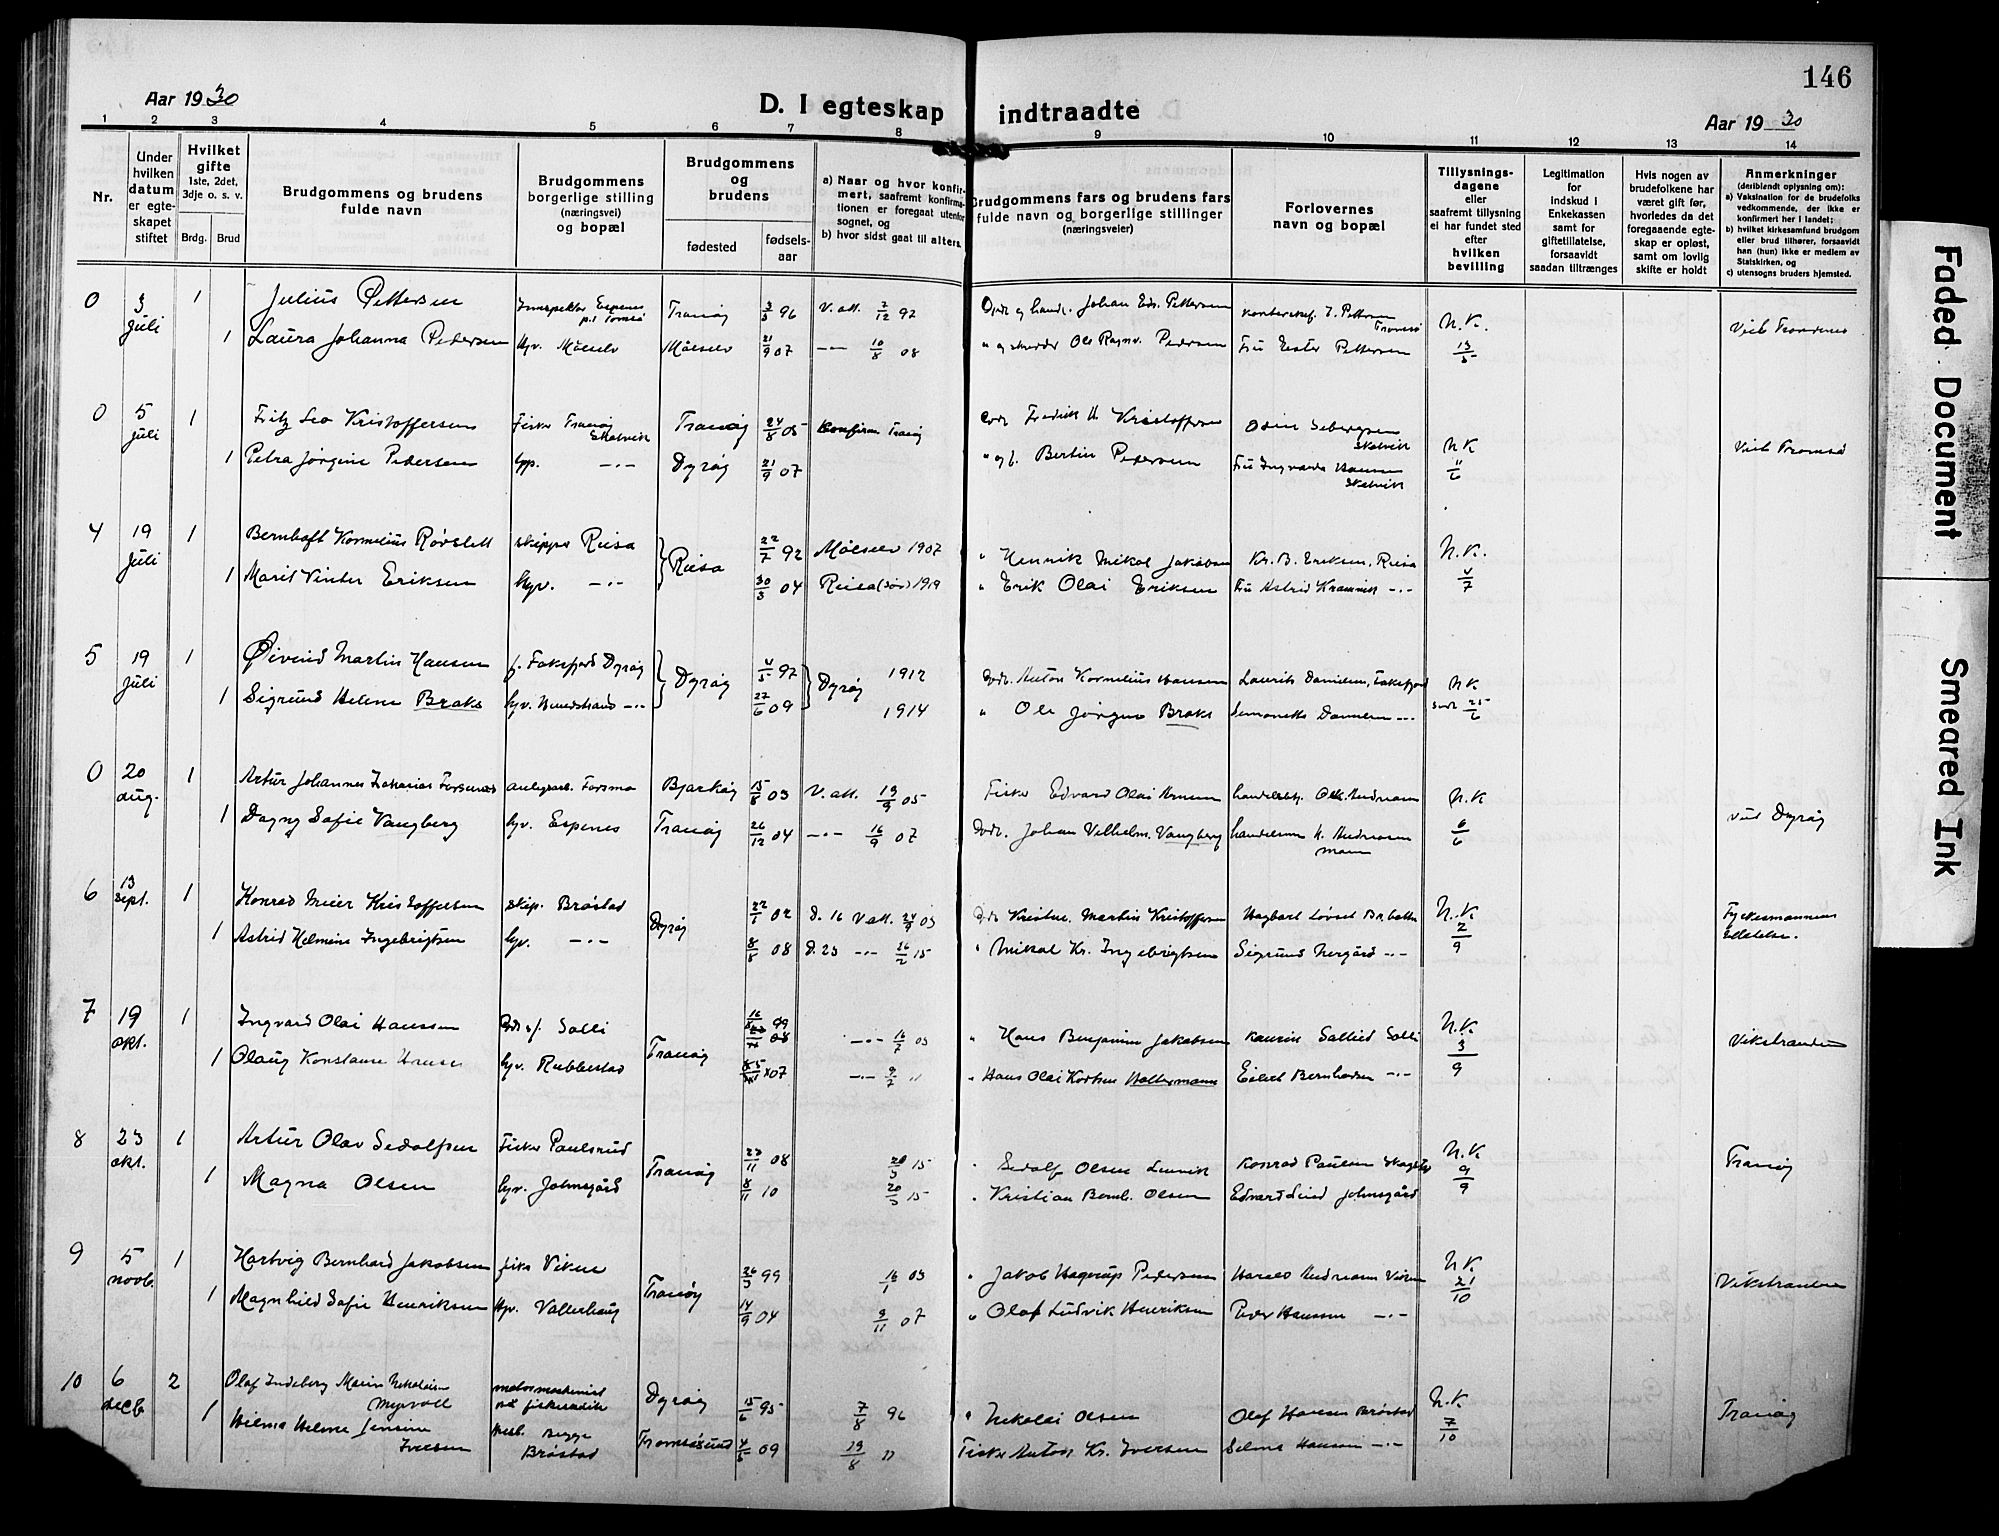 146
Aar 1930
D. I egteskap indtraadte
Aar 1930
1 2 3 4 5 6 7 8 9 10 11 12 13 14
Nr.
Under hvilken datum er egte-skapet stiftet
Hvilket gifte 1ste, 2det, 3dje o. s. v.
Brdg. Brud
Brudgommens og brudens fulde navn
Brudgommens borgerlige stilling (næringsvei) og bopæl
Brudgommens og brudens
fødested
fødsels-aar
a) Naar og hvor konfir-mert, saafremt konfirma-tionen er foregaat utenfor sognet, og
b) hvor sidst gaat til alters.
Brudgommens fars og brudens fars fulde navn og borgerlige stillinger (næringsveier)
Forlovernes navn og bopæl
Tillysnings-dagene eller saafremt tillysning ei har fundet sted efter hvilken bevilling
Legitimation for indskud i Enkekassen samt for giftetillatelse, forsaavidt saadan tiltrænges
Hvis nogen av brudefolkene har været gift før, hvorledes da det foregaaende egte-skap er opløst, samt om lovlig skifte er holdt
Anmerkninger (deriblandt oplysning om):
a) Vaksination for de brudefolks vedkommende, der ikke er konfirmert her i landet;
b) hvilket kirkesamfund brudgom eller brud tilhører, forsaavidt han (hun) ikke er medlem av Statskirken, og
c) utensogns bruders hjemsted.
0 3 Juli 1 Julius Pettersen Tranøy 3/3 96 V. att. 7/12 97 Johan Edv. Pettersen N.K.
1 Laura Johanna Pedersen Hv. Målselv Målselv 21/9 07 —"— 10/8 08 Ole Ragnv. Pedersen Fru Ester Pettersen 13/5
0 5 Juli 1 Fritz Leo Kristoffersen Fisker Tranøy Skatvik Tranøy 24/8 05 Konfirm Tranøy Fredrik H Kristoffersen Skatvik N.K
1 Petra Jørgine Pedersen —"— Dyrøy 21/9 07 Bertin Pedersen Fru Ingvarda Hansen Skatvik 11/6 Viet Tromsø
4 19 Juli 1 Bernhoft Kornelius Rørslett skipper Reisa Reisa 22/7 92 Målselv 1907 Henrik Mikal Jakobsen Kr. B. Eriksen, Reisa N.K.
1 Marit Vinter Eriksen hv. —"— 30/3 04 Reisa (Sør) 1919 Erik Olai Eriksen Fru Astrid —"— 4/7
5 19 Juli 1 Øivind Martin Hansen f. Faksfjord Dyrøy Dyrøy 4/5 97 Dyrøy 1912 Anton Kornelius Hansen N.K.
1 Sigrund Helene Braks hv. —"— 27/6 09 1914 Ole Jørgen Braks 25/6
0 20 aug. 1 Artur Johannes Zakarias Forsmo Bjarkøy 15/8 03 V. att. 19/9 05 Fisker Edvard Olai N.K
1 Dagny Sofie Vangberg hv. Espenes Tranøy 26/12 04 —"— 16/9 07 Johan Vilhelm. Vangberg 6/6 viet Dyrøy
6 13 sept. 1 Konrad Meier Kristoffersen skip. Brøstad Dyrøy 22/1 02 D. 16 V att. 24/9 05 Martin Kristoffersen N.K.
1 Astrid Helmine Ingebrigtsen hv. —"— 8/8 08 D. 23 —"— 26/2 15 Mikal Kr. Ingebrigtsen Sigrund Nergård —"— 2/9
7 19 okt. 1 Ingvard Olai Hanssen Solli Tranøy 16/8 09 —"— 16/7 05 Hans Benjamin Jakobsen Solli N.K.
1 Olaug Konstanse hv. Rubbestad 07 —"— 9/7 11 Hans Olai Kortsen Haltermann Eilert Bernhardsen —"— 3/9 Vikstranden
8 23 okt. 1 Artur Olav Sedolfsen Fisker Paulsrud Tranøy 23/11 08 20/3 15 Sedolf Olsen Konrad Paulsen N.K
1 Magna Olsen hv. Johnsgård 8/11 10 20/3 15 Kristian Bernh. Olsen Edvard Lind Johnsgård 9/9 Tranøy
9 5 novb. 1 Hartvig Bernhard Jakobsen fisker Viken Tranøy 26/3 99 16/1 05 Jakob Hagerup Pedersen Viken N.K.
1 Magnhild Sofie Henriksen Hv. Vallerhaug 14/9 04 9/11 07 Olaf Ludvik Henriksen Peder Hanssen —"— 21/10 Vikstranden
10 6 decb 2 Olaf Indeberg Marin Nikolaisen Myrvoll motormaskinist Dyrøy 15/6 95 7/8 96 Nikolai Olsen Olaf Hansen Brøstad N.K.
1 Hilma Helene Jensine Iversen Begge Brøstad Tromsøsund 4/5 09 29/8 11 Fisker Anton Kr. Iversen Selma Hansen —"— 7/10 Tranøy
Faded Document
Smeared Ink